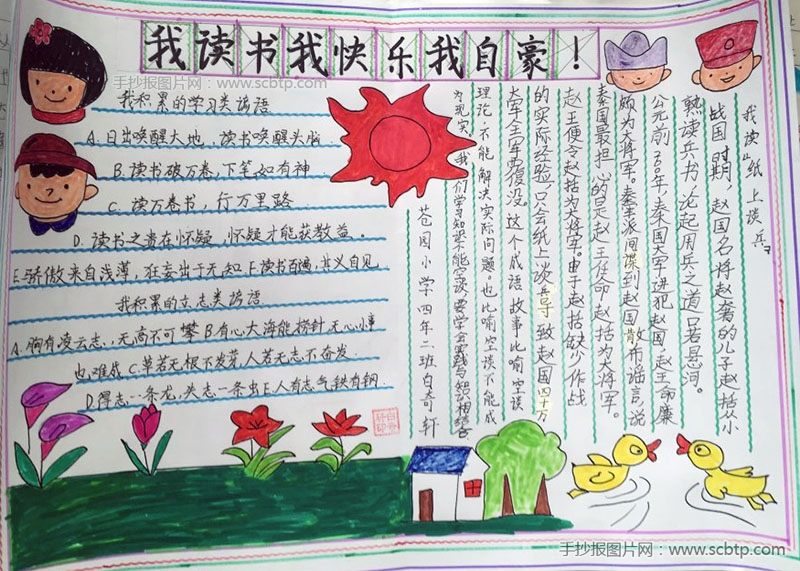 我读书我快乐我自豪！
手抄报图片网：www.scbtp.com
我积累的学习类谚语
A. 日出唤醒大地，读书唤醒头脑
B. 读书破万卷，下笔如有神
C. 读万卷书，行万里路
D. 读书之贵在怀疑，怀疑才能获教益。
E. 骄傲来自浅薄，狂妄出于无知 F. 读书百遍，其义自见
我积累的立志类谚语
A. 胸有凌云志，无高不可攀 B 有心大海能捞针，无心小事
也难成 C. 草若无根不发芽，人若无志不奋发
D. 得志一条龙，失志一条虫 E. 人有志气，铁有钢
我读“纸上谈兵”
战国时期，赵国名将赵奢的儿子赵括从小
熟读兵书，论起用兵之道口若悬河。
公元前260年，秦国大军进犯赵国，赵王命廉
颇为大将军。秦军派间谍到赵国散布谣言，说
秦国最担心的是赵王任命赵括为大将军。
赵王便令赵括为大将军。由于赵括缺少作战
的实际经验，只会纸上谈兵，导致赵国四十万
大军全军覆没。这个成语故事比喻空谈
理论，不能解决实际问题。也比喻空谈不能成
为现实。我们学习知识不能空谈，要学会实践与知识相结合
苍园小学四年二班白奇轩
手抄报图片网：www.scbtp.com